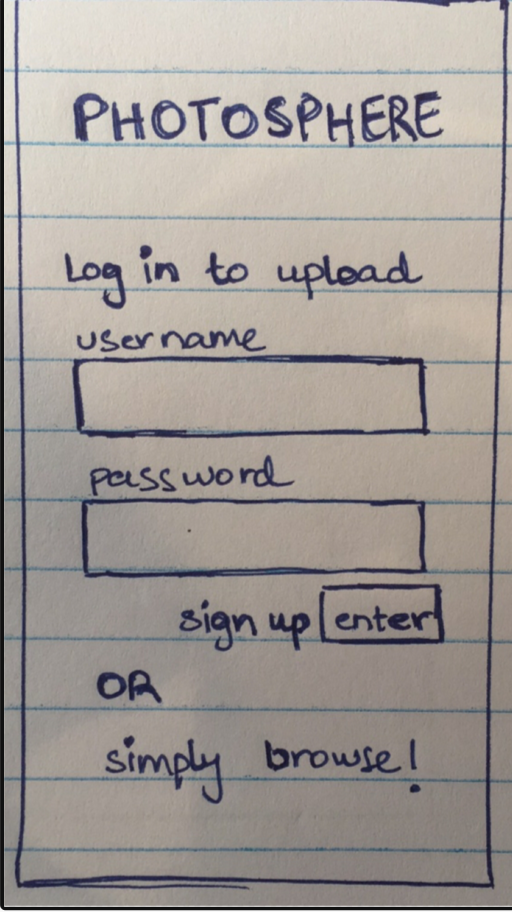 PHOTOSPHERE
Log in to upload
username
password
sign up enter
OR
simply browse!